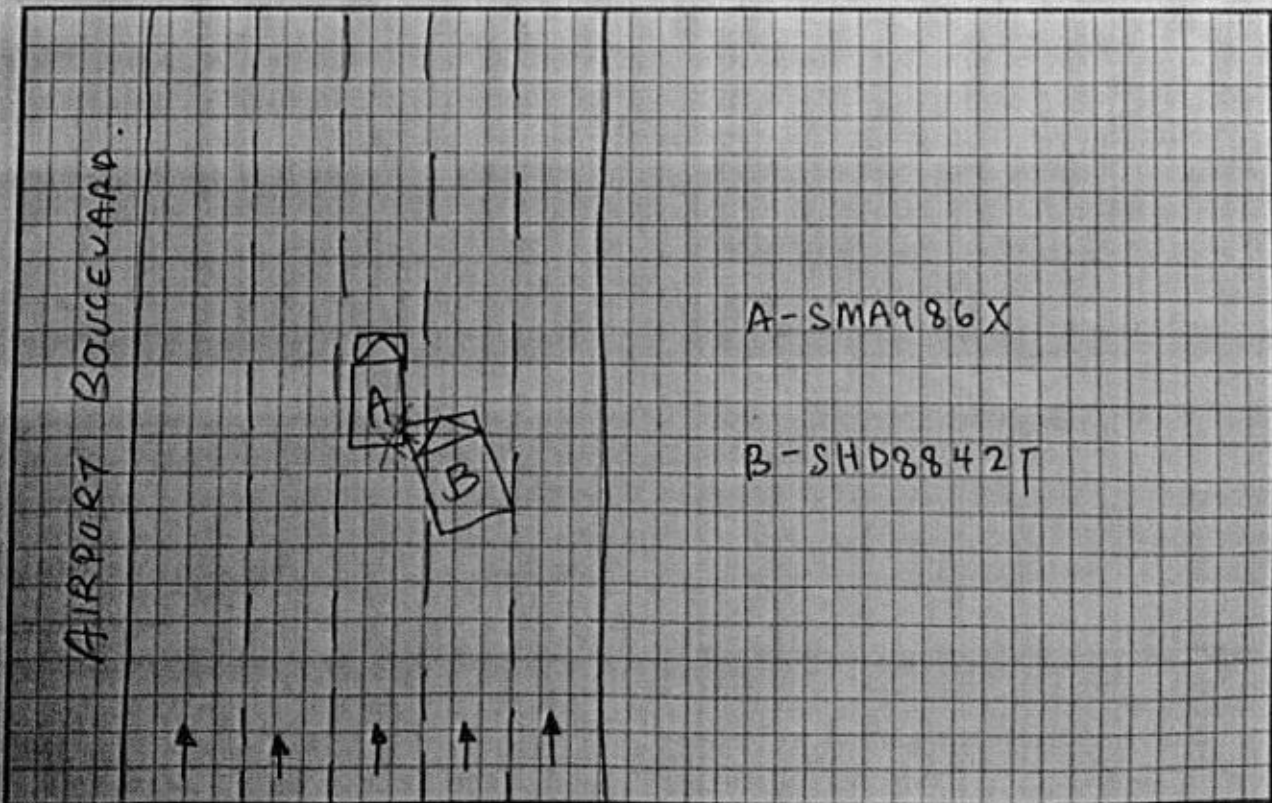 AIRPORT BOULEVARD.
A
B
A-SMA986X
B-SHD8842T